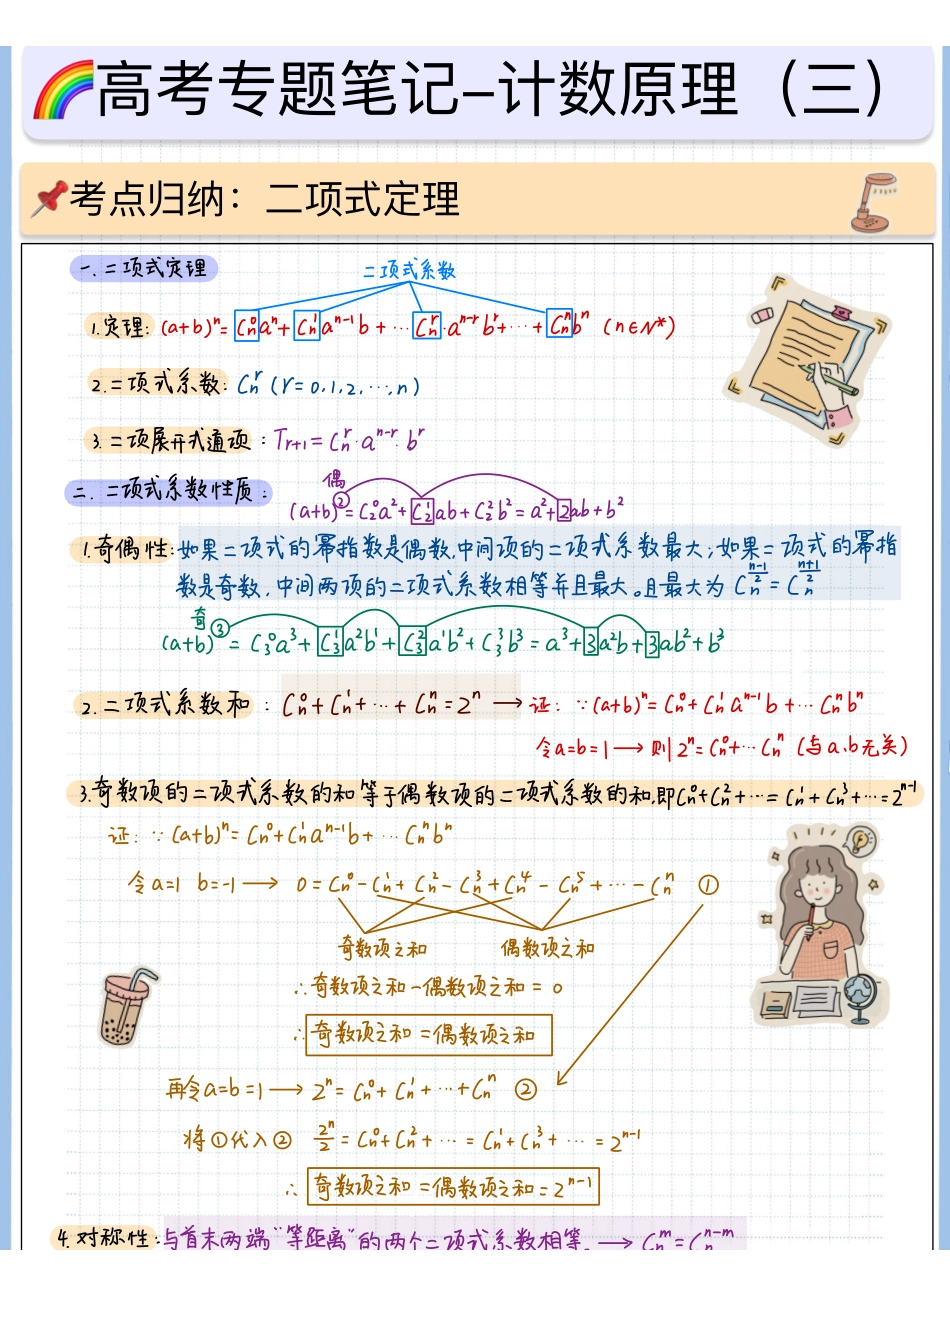 高考专题笔记-计数原理（三）
考点归纳：二项式定理
一.二项式定理
二项式系数
1.定理: (a+b)ⁿ= Cₙ⁰aⁿ+ Cₙ¹aⁿ⁻¹b + ⋯ Cₙʳ·aⁿ⁻ʳbʳ+⋯+ Cₙⁿbⁿ (n∈N*)
2.二项式系数: Cₙʳ (r=0,1,2,⋯,n)
3.二项展开式通项: Tᵣ₊₁= Cₙʳ·aⁿ⁻ʳ·bʳ
二.二项式系数性质:
偶
(a+b)^②= C₂⁰a²+ C₂¹ab+C₂²b²= a²+2ab+b²
1.奇偶性:如果二项式的幂指数是偶数,中间项的二项式系数最大;如果二项式的幂指
数是奇数,中间两项的二项式系数相等并且最大。且最大为 Cₙ^((n-1)/2) = Cₙ^((n+1)/2)
奇
(a+b)^③= C₃⁰a³+ C₃¹a²b¹+ C₃²a¹b²+ C₃³b³= a³+3a²b+3ab²+b³
2.二项式系数和: Cₙ⁰+Cₙ¹+⋯+ Cₙⁿ=2ⁿ → 证: ∵(a+b)ⁿ= Cₙ⁰+Cₙ¹aⁿ⁻¹b+⋯Cₙⁿbⁿ
令a=b=1→ 则2ⁿ=Cₙ⁰+⋯Cₙⁿ (与a,b无关)
3.奇数项的二项式系数的和等于偶数项的二项式系数的和,即Cₙ⁰+Cₙ²+⋯= Cₙ¹+Cₙ³+⋯=2ⁿ⁻¹
证: ∵ (a+b)ⁿ= Cₙ⁰+Cₙ¹aⁿ⁻¹b+ ⋯ Cₙⁿbⁿ
令a=1 b=-1→ 0= Cₙ⁰-Cₙ¹+ Cₙ²- Cₙ³+Cₙ⁴- Cₙ⁵+⋯- Cₙⁿ ①
奇数项之和 偶数项之和
∴奇数项之和-偶数项之和= 0
∴奇数项之和=偶数项之和
再令a=b=1→ 2ⁿ= Cₙ⁰+ Cₙ¹+⋯+Cₙⁿ ②
将①代入② 2ⁿ/2= Cₙ⁰+Cₙ²+⋯= Cₙ¹+Cₙ³+⋯=2ⁿ⁻¹
∴ 奇数项之和=偶数项之和=2ⁿ⁻¹
4.对称性:与首末两端“等距离”的两个二项式系数相等.→ Cₙᵐ=Cₙⁿ⁻ᵐ